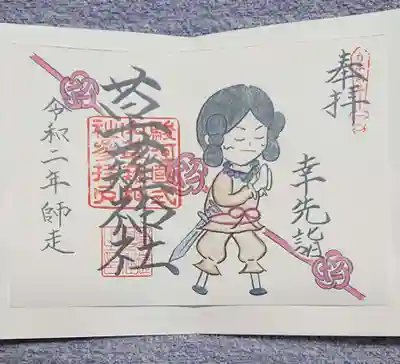 奉拝
幸先詣
草薙神社
令和二年 師走